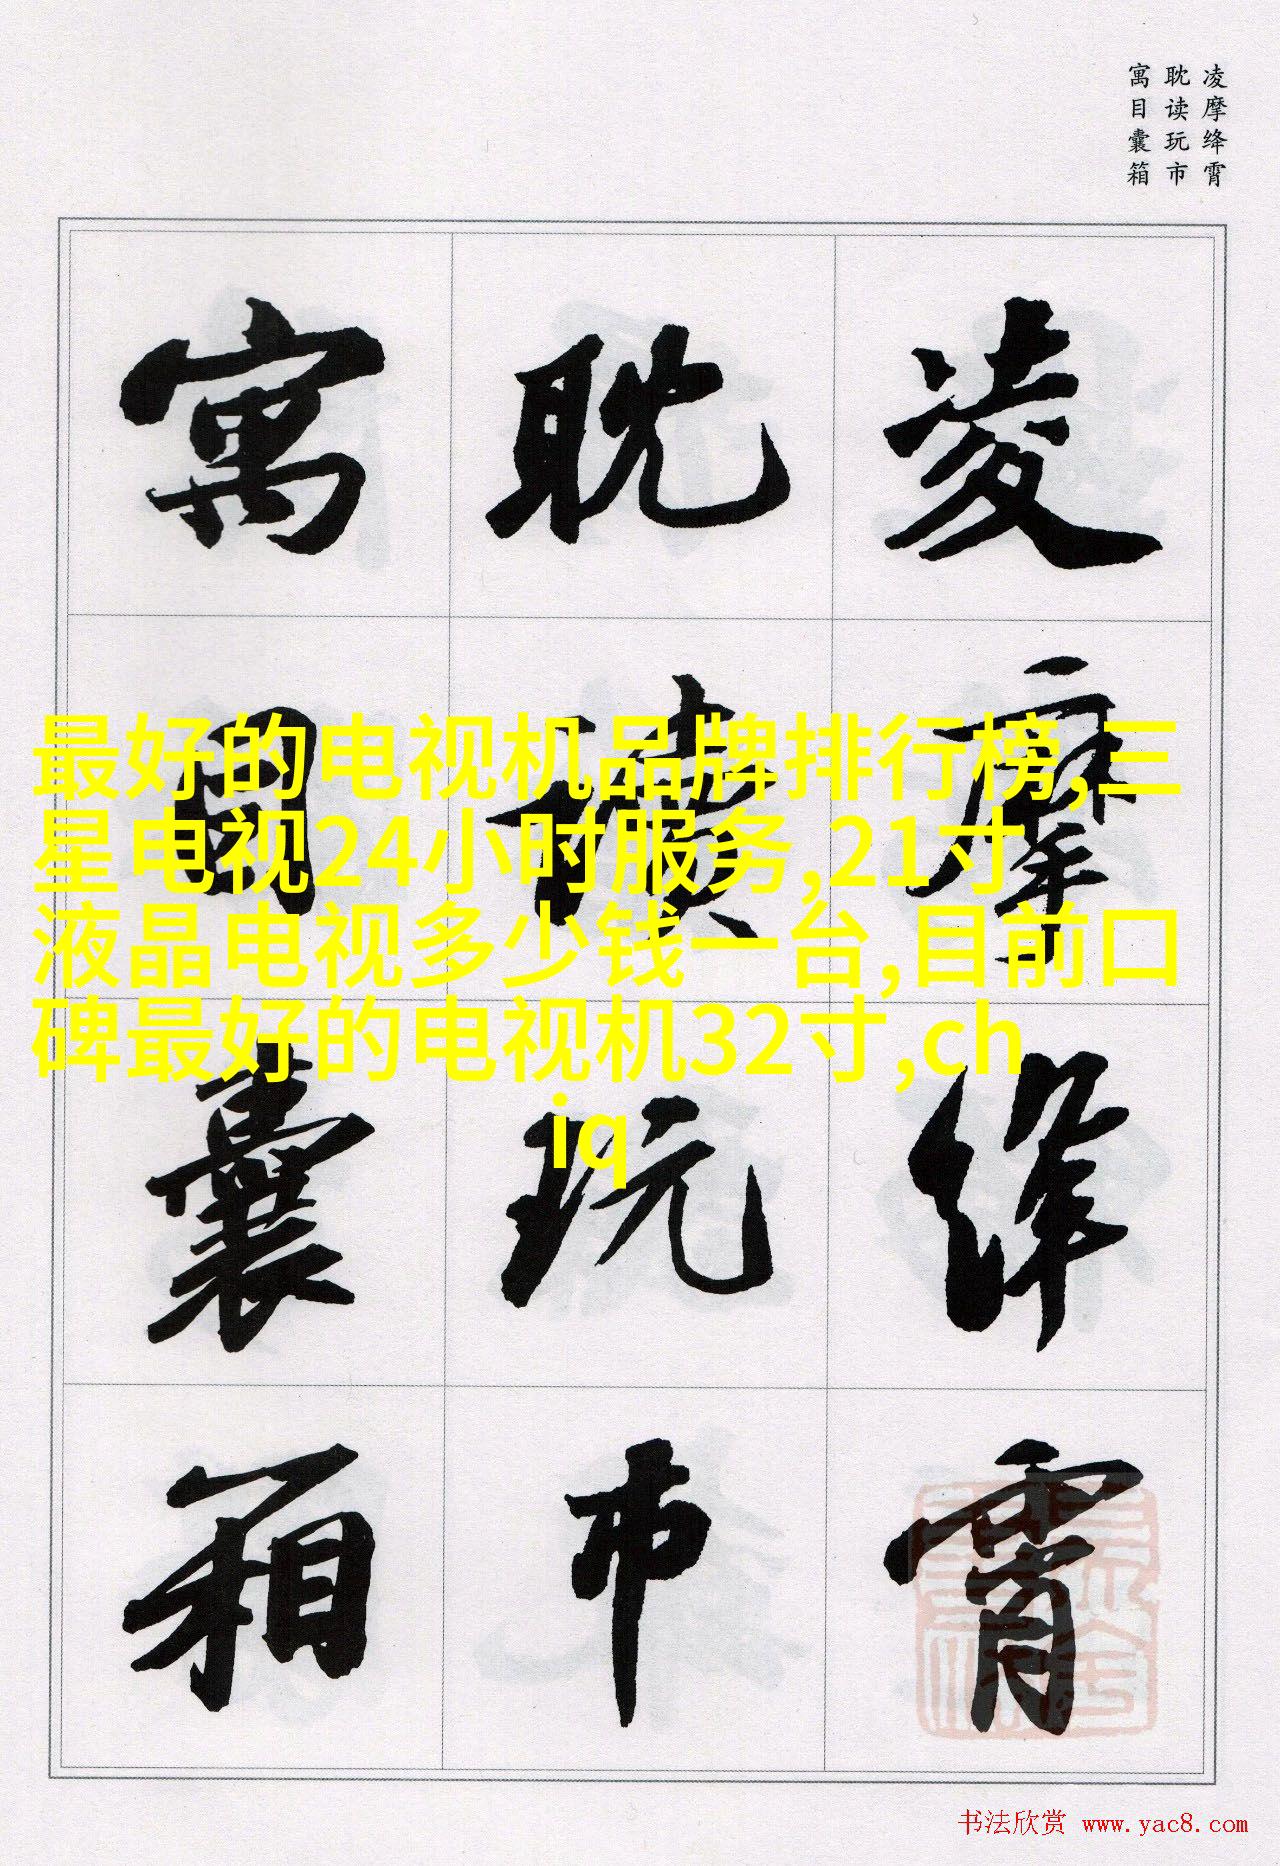 凌摩绛霄
耽读玩市
寓目囊箱
凌摩绛霄
耽读玩市
寓目囊箱
最好的电视机品牌排行榜,三
星电视24小时服务,21寸
液晶电视多少钱一台,目前口
碑最好的电视机32寸,ch
iq
书法欣赏 www.yac8.com